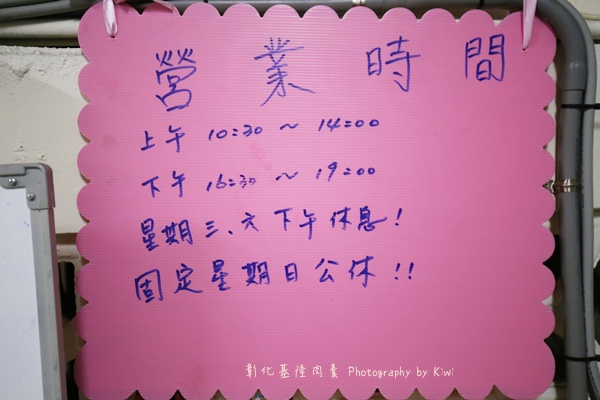 營業時間
上午 10:30 ~ 14:00
下午 16:30 ~ 19:00
星期三、六下午休息!
固定星期日公休!!
彰化基隆肉羹 Photography by Kiwi